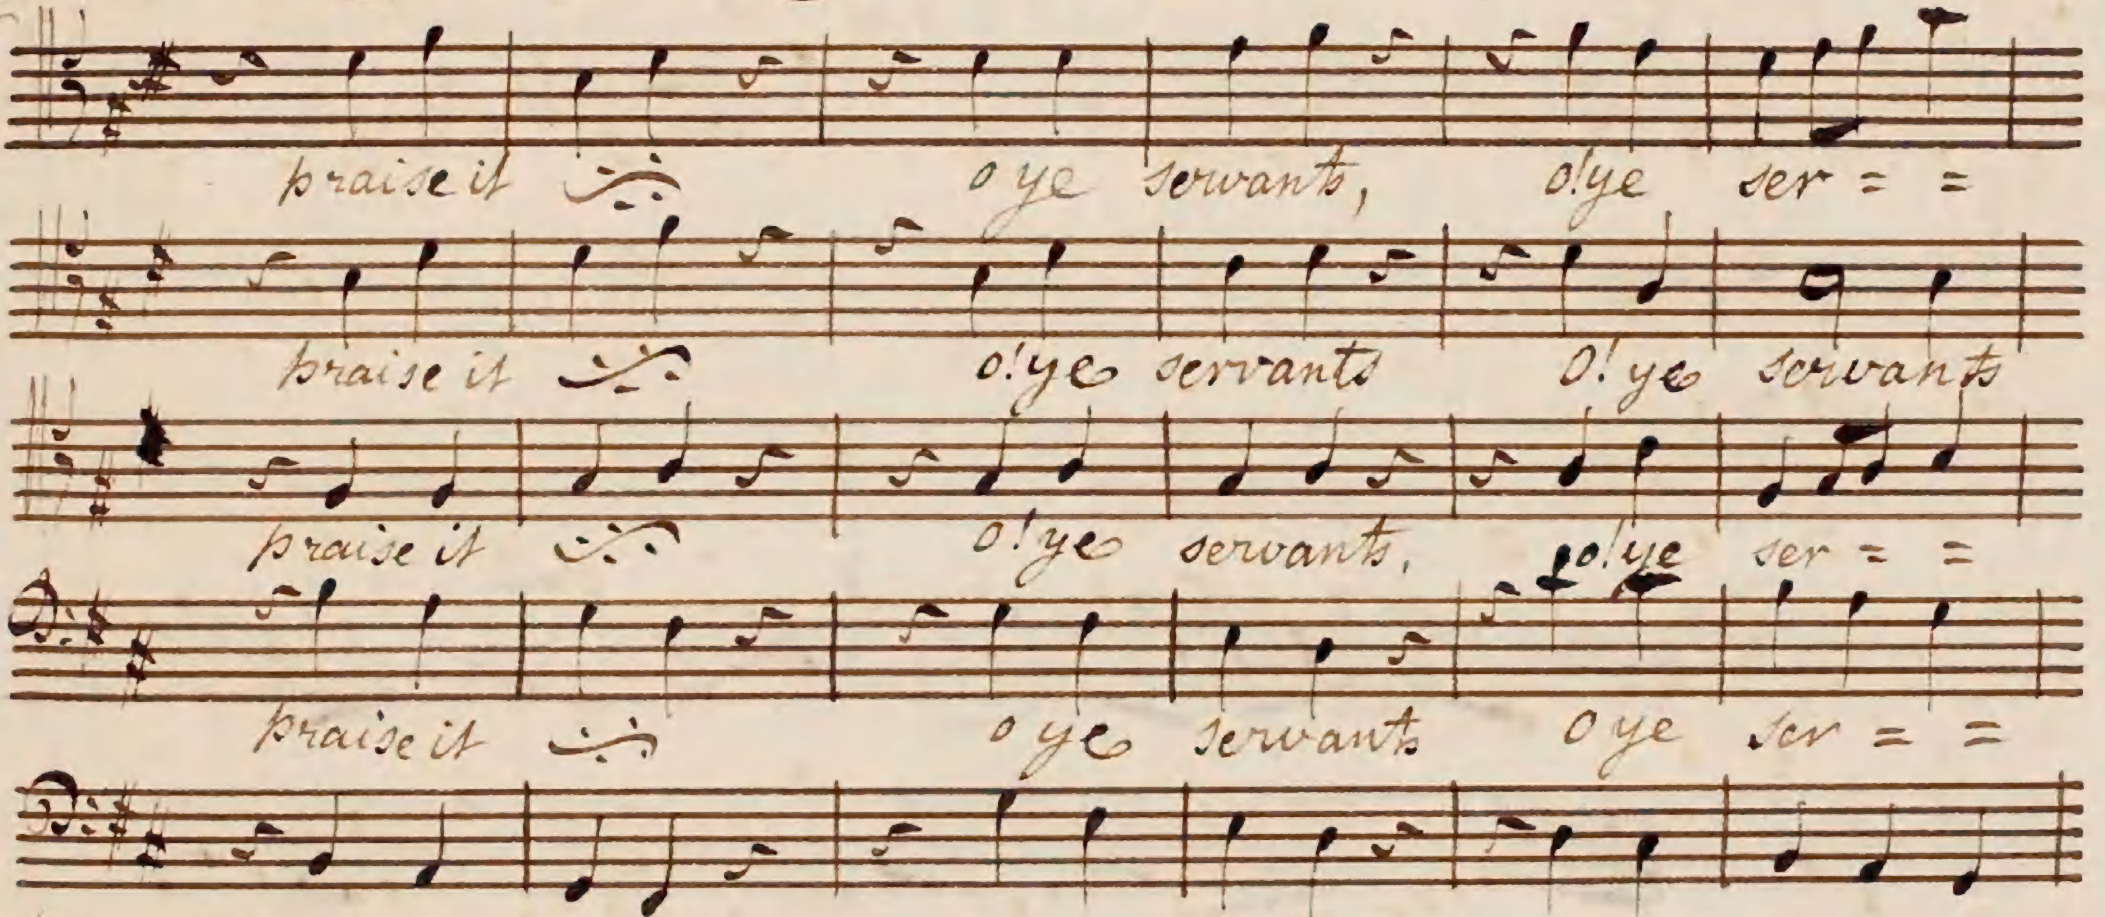 praise it o ye servants, o! ye ser = =
praise it o! ye servants O! ye servants
praise it o! ye servants, o! ye ser = =
praise it o ye servants o ye ser = =